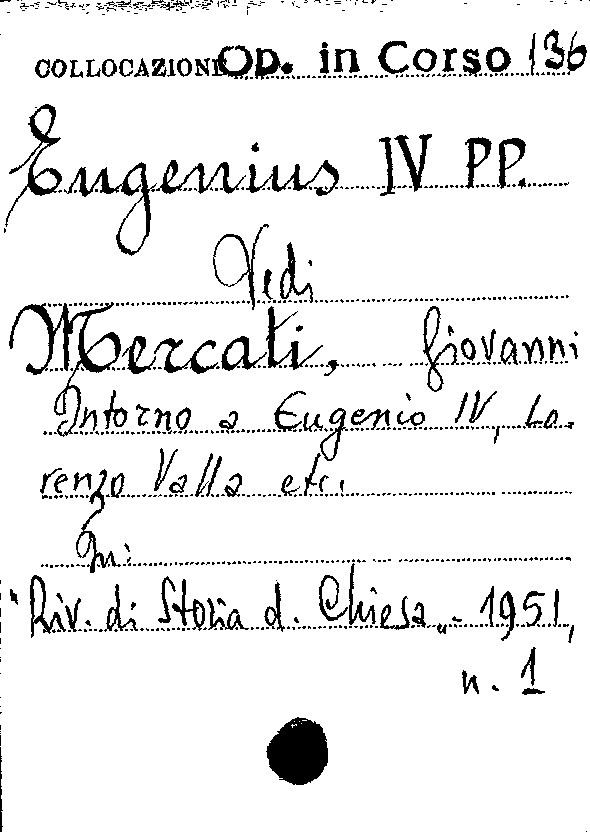 COLLOCAZIONE OD. in Corso 136
Eugenius IV PP.
Vedi
Mercati, Giovanni
Intorno a Eugenio IV, Lo-
renzo Valla etc.
In:
"Riv. di Storia d. Chiesa„. 1951,
n. 1